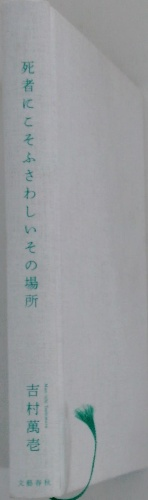 死者にこそふさわしいその場所
吉村萬壱
文藝春秋